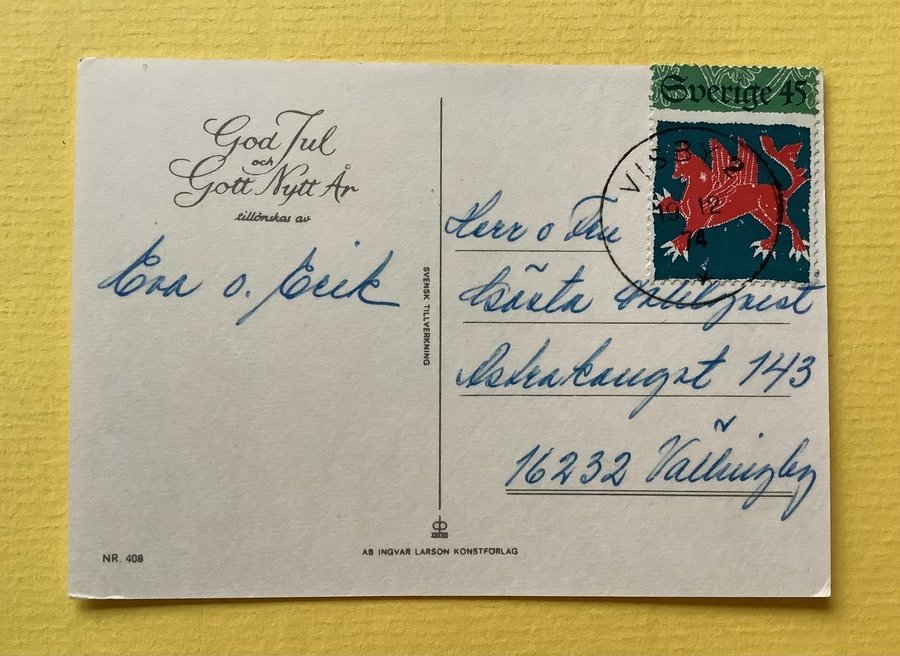 God Jul
och
Gott Nytt År
tillönskas av
Eva o. Erik
SVENSK TILLVERKNING
Sverige 45
VISBY 3
19 12
74
Herr o Fru
Gösta Hallqvist
Astrakangat 143
16232 Vällingby
NR. 408
AB INGVAR LARSON KONSTFÖRLAG